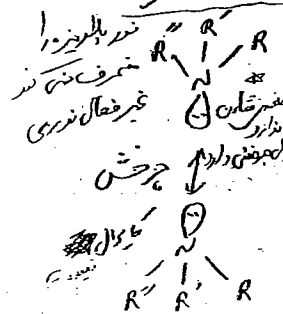 نور پلاریزه را
منحرف نمی کند
غیر فعال نوری
R'' R' R
N
تقارن
ندارد
دارد
چرخش
کایرال
N
نیست
R'' R' R